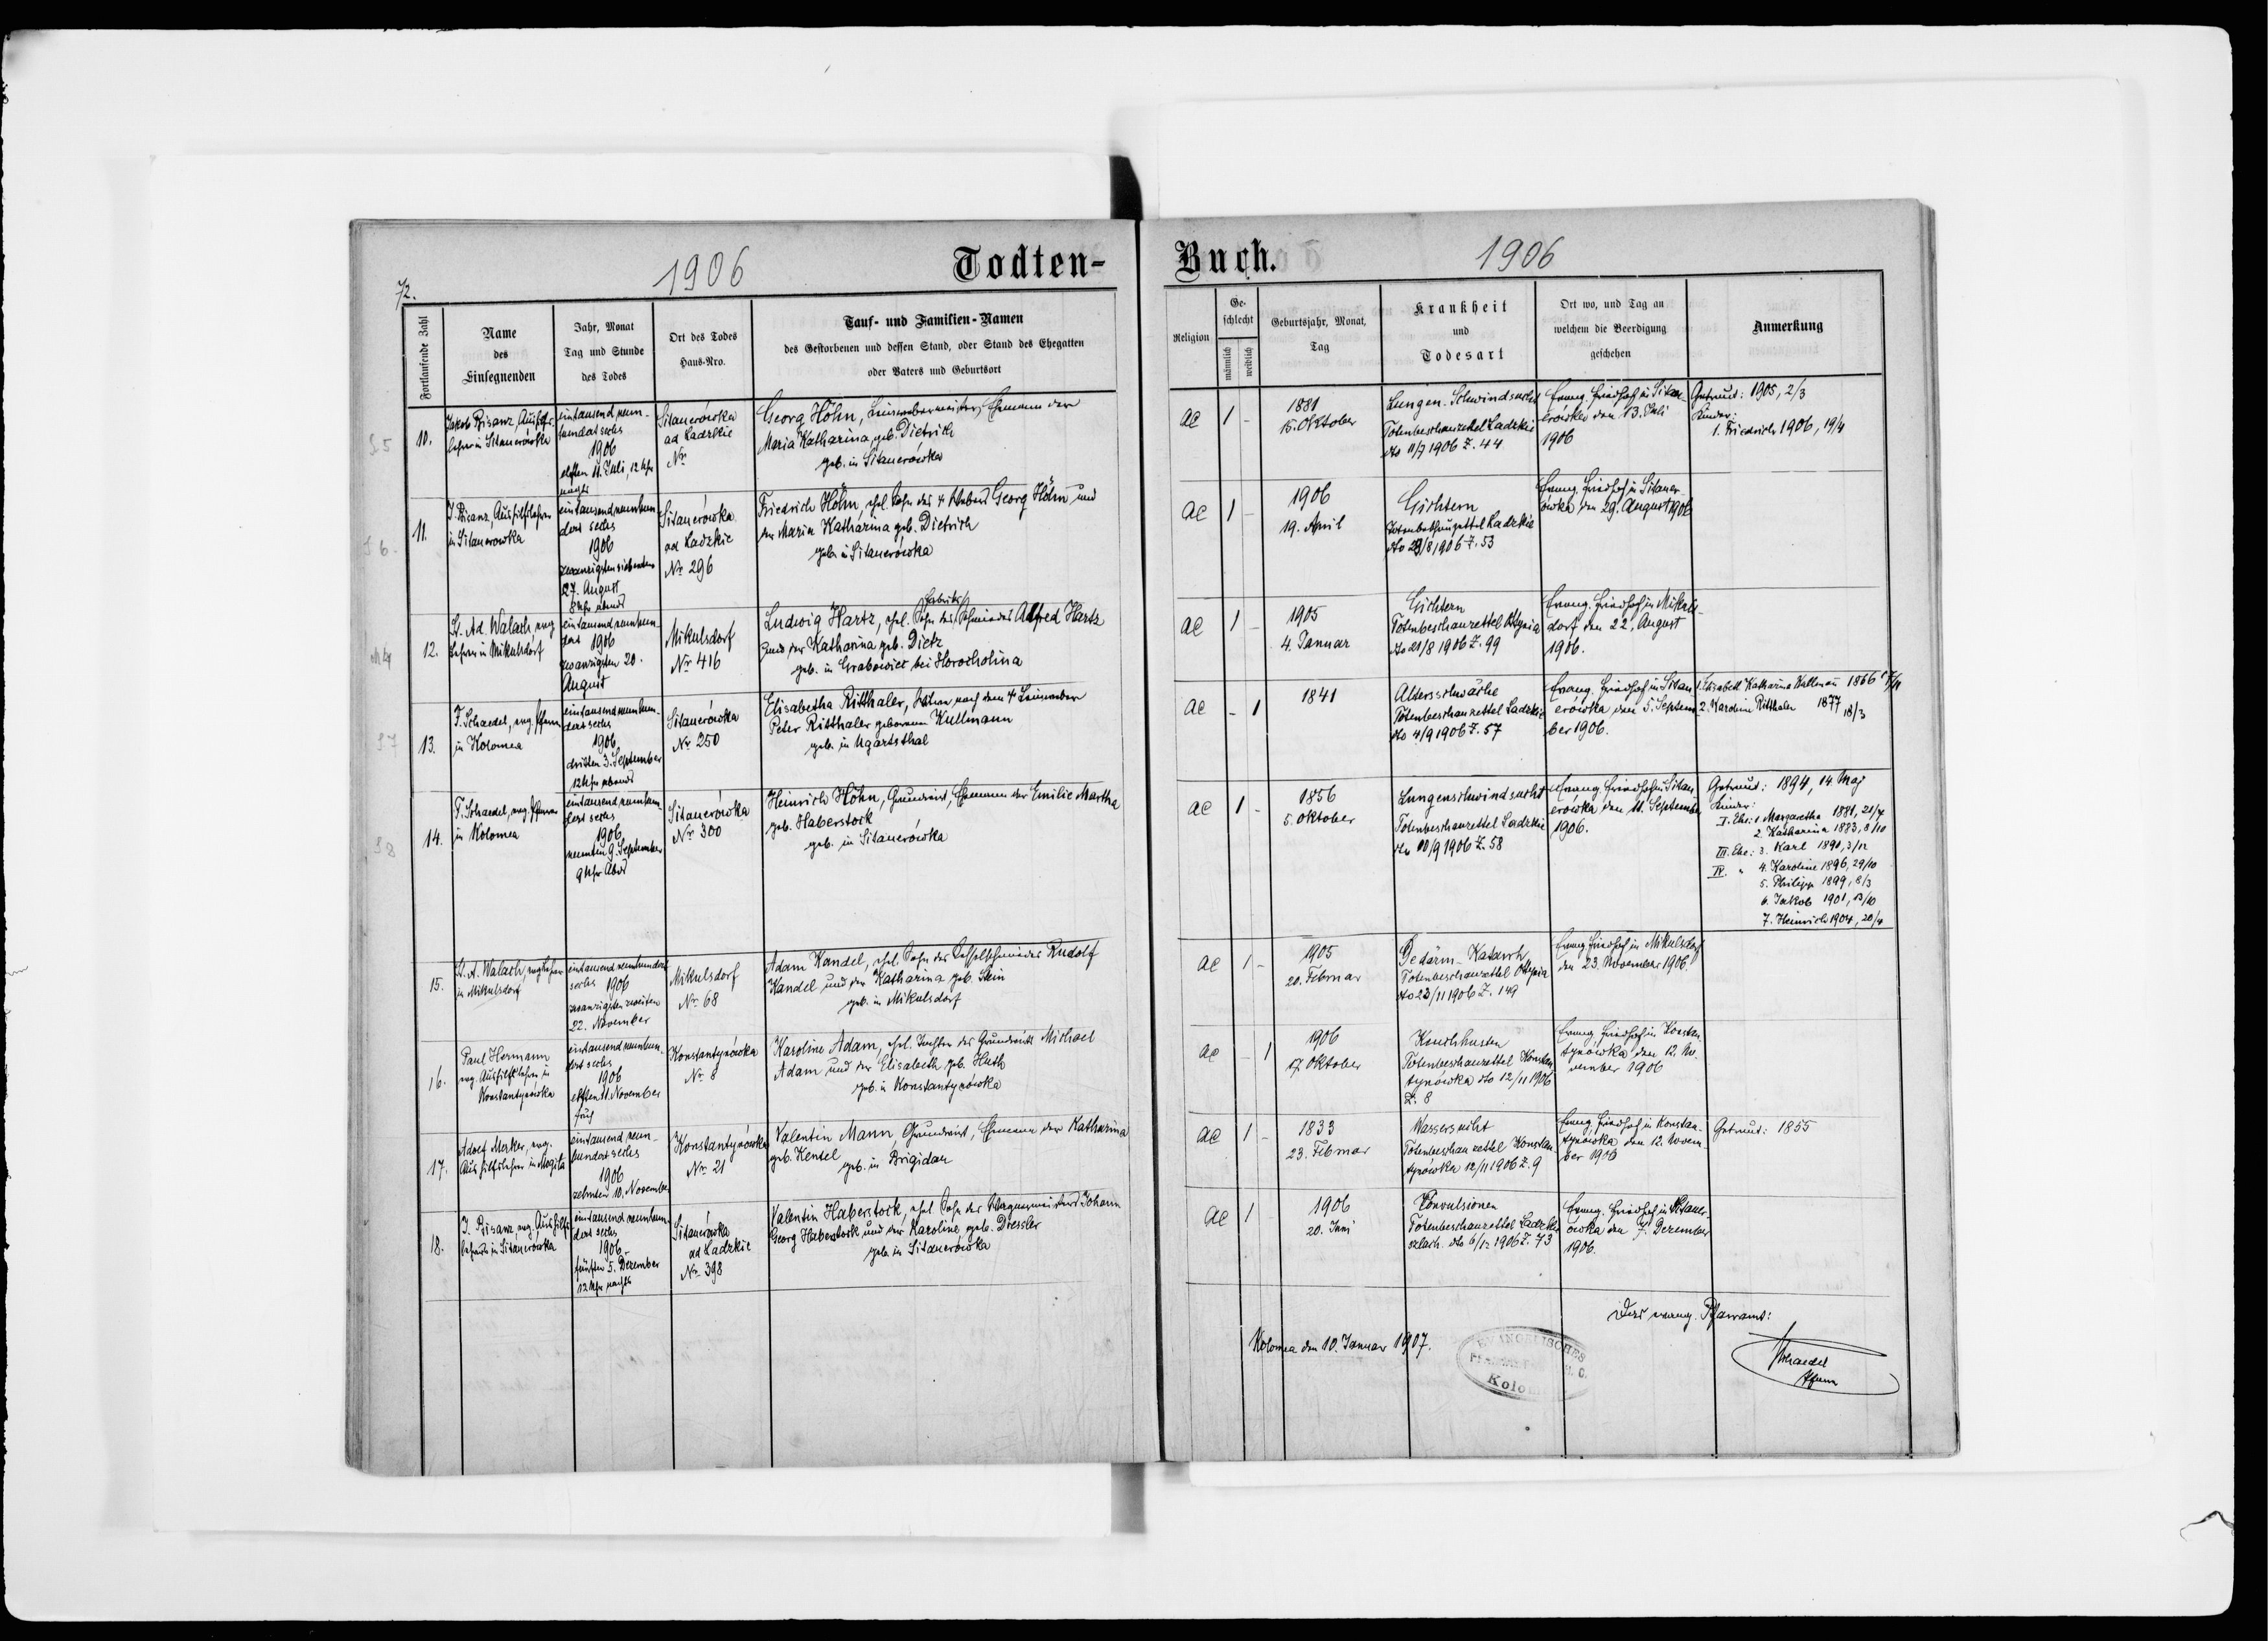 72.
1906
Todten-
Fortlaufende Zahl
Name
des
Einsegnenden
Jahr, Monat
Tag und Stunde
des Todes
Ort des Todes
Haus-Nro.
Tauf- und Familien-Namen
des Gestorbenen und dessen Stand, oder Stand des Ehegatten
oder Vaters und Geburtsort
S 5
10.
Jakob Prisanz, Aushilfs-
lehrer in Sitauerówka
eintausend neun-
hundert sechs
1906
elften 11. Juli, 12 Uhr
nachts
Sitauerówka
ad Ladzkie
Nr
Georg Höhn, Leinwebermeister, Ehemann der
Maria Katharina, geb. Dietrich
geb. in Sitauerówka
S 6.
11.
J. Prisanz, Aushilfslehrer
in Sitauerowka
eintausend neunhun-
dert sechs
1906
zwanzigsten siebenten
27. August
8 Uhr abend
Sitauerówka
ad Ladzkie
Nr 296
Friedrich Höhn, ehel. Sohn des † Webers Georg Höhn und
der Maria Katharina geb. Dietrich
geb. in Sitauerówka
M 4
12.
St. Ad. Walach, evg
Lehrer in Mikulsdorf
eintausend neunhun-
dert 1906
zwanzigsten 20.
August
Mikulsdorf
Nr 416
Fabriks
Ludwig Hartz, ehel. Sohn des Schmiedes Alfred Hartz
und der Katharina geb. Dietz
geb. in Grabowiec bei Horocholina
S 7
13.
F. Schaedel, evg. Pfarrer
in Kolomea
eintausend neunhun-
dert sechs
1906
dritten 3. September
12 Uhr abend
Sitauerówka
Nr 250
Elisabetha Ritthaler, Witwe nach dem † Leinweber
Peter Ritthaler geborene Kullmann
geb. in Ugartsthal
S 8
14.
F. Schaedel, evg. Pfarrer
in Kolomea
eintausend neunhun-
dert sechs
1906
neunten 9. September
9 Uhr Abend
Sitauerówka
Nr 300
Heinrich Höhn, Grundwirt, Ehemann der Emilie Martha
geb. Haberstock
geb. in Sitauerówka
15.
St. A. Walach, evg Lehrer
in Mikulsdorf
eintausend neunhundert
sechs 1906
zwanzigsten zweiten
22. November
Mikulsdorf
Nr. 68
Adam Kandel, ehel. Sohn des Kesselschmiedes Rudolf
Kandel und der Katharina geb. Stein
geb. in Mikulsdorf
16.
Paul Hermann
evg. Aushilfslehrer in
Konstantynówka
eintausend neunhun-
dert sechs
1906
elften 11. November
früh
Konstantynówka
Nr 8
Karoline Adam, ehel. Tochter des Grundwirts Michael
Adam und der Elisabeth geb. Huth
geb. in Konstantynówka
17.
Adolf Merker, evg.
Aushilfslehrer in Mogila
eintausend neun-
hundert sechs
1906
zehnten 10. November
Konstantynówka
Nr. 21
Valentin Mann, Grundwirt, Ehemann der Katharina
geb. Kentel
geb. in Brigidau
18.
J. Prisanz, evg. Aushilfs-
lehrer in Sitauerówka
eintausend neunhun-
dert sechs
1906
fünften 5. Dezember
12 Uhr nachts
Sitauerówka
ad Ladzkie
Nr 398
Valentin Haberstock, ehel. Sohn des Wagnermeisters Johann
Georg Haberstock und der Karoline geb. Diessler
geb. in Sitauerówka
Buch.
1906
Religion
Ge-
schlecht
männlich
weiblich
Geburtsjahr, Monat,
Tag
Krankheit
und
Todesart
Ort wo, und Tag an
welchem die Beerdigung
geschehen
Anmerkung
AC
1
-
1881
15. Oktober
Lungen-Schwindsucht
Totenbeschauzettel Ladzkie
dto 11/7 1906 Z. 44
Evang. Friedhof in Sitau-
erówka den 13. Juli
1906
Getraut: 1905, 2/3
Kinder:
1. Friedrich 1906, 19/4
AC
1
-
1906
19. April
Gichtern
Totenbeschauzettel Ladzkie
dto 29/8 1906 Z. 53
Evang. Friedhof in Sitauer-
ówka den 29. August 1906
AC
1
-
1905
4. Januar
Gichtern
Totenbeschauzettel Ottynia
dto 21/8 1906 Z. 99
Evang. Friedhof in Mikuls-
dorf den 22. August
1906.
AC
-
1
1841
Altersschwäche
Totenbeschauzettel Ladzkie
dto 4/9 1906 Z. 57
Evang. Friedhof in Sitau-
erówka den 5. Septem-
ber 1906.
1. Elisabeth Katharina Kullmann 1866
2. Karoline Ritthaler 1877 18/3
AC
1
-
1856
5. Oktober
Lungenschwindsucht
Totenbeschauzettel Ladzkie
dto 10/9 1906 Z. 58
Evang. Friedhof in Sitau-
erówka den 11. September
1906.
Getraut: 1894, 14 Maj
Kinder:
I. Ehe: 1. Margaretha 1881, 21/7
2. Katharina 1883, 8/10
III. Ehe: 3. Karl 1891, 3/12
IV. " 4. Karoline 1896, 29/10
5. Philipp 1899, 8/3
6. Jakob 1901, 13/10
7. Heinrich 1904, 20/4
AC
1
-
1905
20. Februar
Gedärm-Katarrh
Totenbeschauzettel Ottynia
dto 23/11 1906 Z. 149
Evang. Friedhof in Mikulsdorf
den 23. November 1906.
AC
-
1
1906
17. Oktober
Keuchhusten
Totenbeschauzettel Konstan-
tynówka dto 12/11 1906
Z. 8
Evang. Friedhof in Konstan-
tynówka den 12. No-
vember 1906
AC
1
-
1833
23. Februar
Wassersucht
Totenbeschauzettel Konstan-
tynówka 12/11 1906 Z. 9
Evang. Friedhof in Konstan-
tynówka den 12. Novem-
ber 1906
Getraut: 1855
AC
1
1906
20. Juni
Convulsionen
Totenbeschauzettel Ladzkie
szlach. dto 6/12 1906 Z. 73
Evang. Friedhof in Sitauer-
ówka den 7. Dezember
1906.
Das evang. Pfarramt:
Kolomea den 10. Januar 1907.
EVANGELISCHES
Kolo
Schaedel
Pfarrer